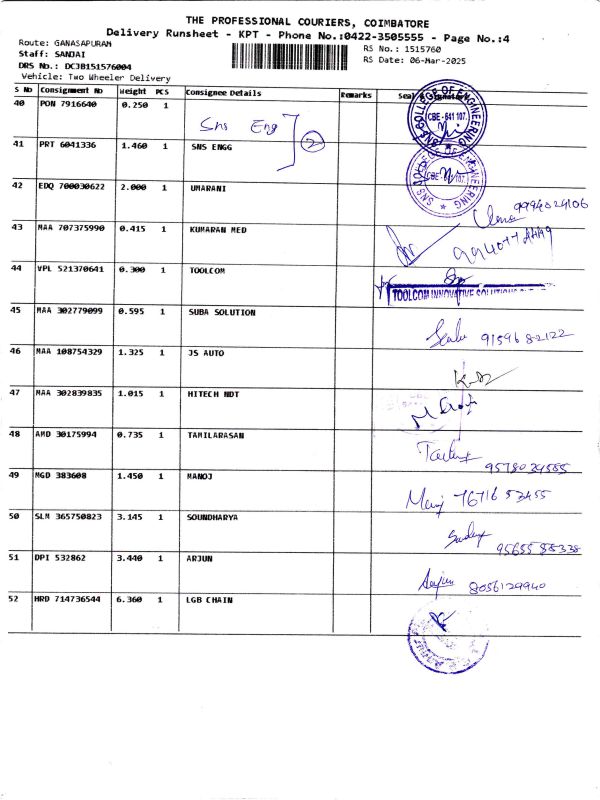 THE PROFESSIONAL COURIERS, COIMBATORE
Delivery Runsheet - KPT - Phone No.:0422-3505555 - Page No.:4
Route: GANASAPURAM
RS No.: 1515760
Staff: SANJAI
RS Date: 06-Mar-2025
DRS No.: DCJB151576004
Vehicle: Two Wheeler Delivery
S No Consignment No Weight PCS Consignee Details Remarks Seal
40 PON 7916640 0.250 1
Sns Eng 2
SNS COLLEGE OF ENGINEERING CBE - 641 107.
41 PRT 6041336 1.460 1 SNS ENGG
SNS COLLEGE OF ENGINEERING CBE - 107.
42 EDQ 700030622 2.000 1 UMARANI
9994024106
43 MAA 707375990 0.415 1 KUMARAN MED
44 VPL 521370641 0.300 1 TOOLCOM
TOOLCOM INNOVATIVE
45 MAA 302779099 0.595 1 SUBA SOLUTION
9159682122
46 MAA 108754329 1.325 1 JS AUTO
47 MAA 302839835 1.015 1 HITECH NDT
48 AMD 30175994 0.735 1 TAMILARASAN
49 MGD 383608 1.450 1 MANOJ
50 SLM 365750823 3.145 1 SOUNDHARYA
51 DPI 532862 3.440 1 ARJUN
Arjun 8056129940
52 HRD 714736544 6.360 1 LGB CHAIN